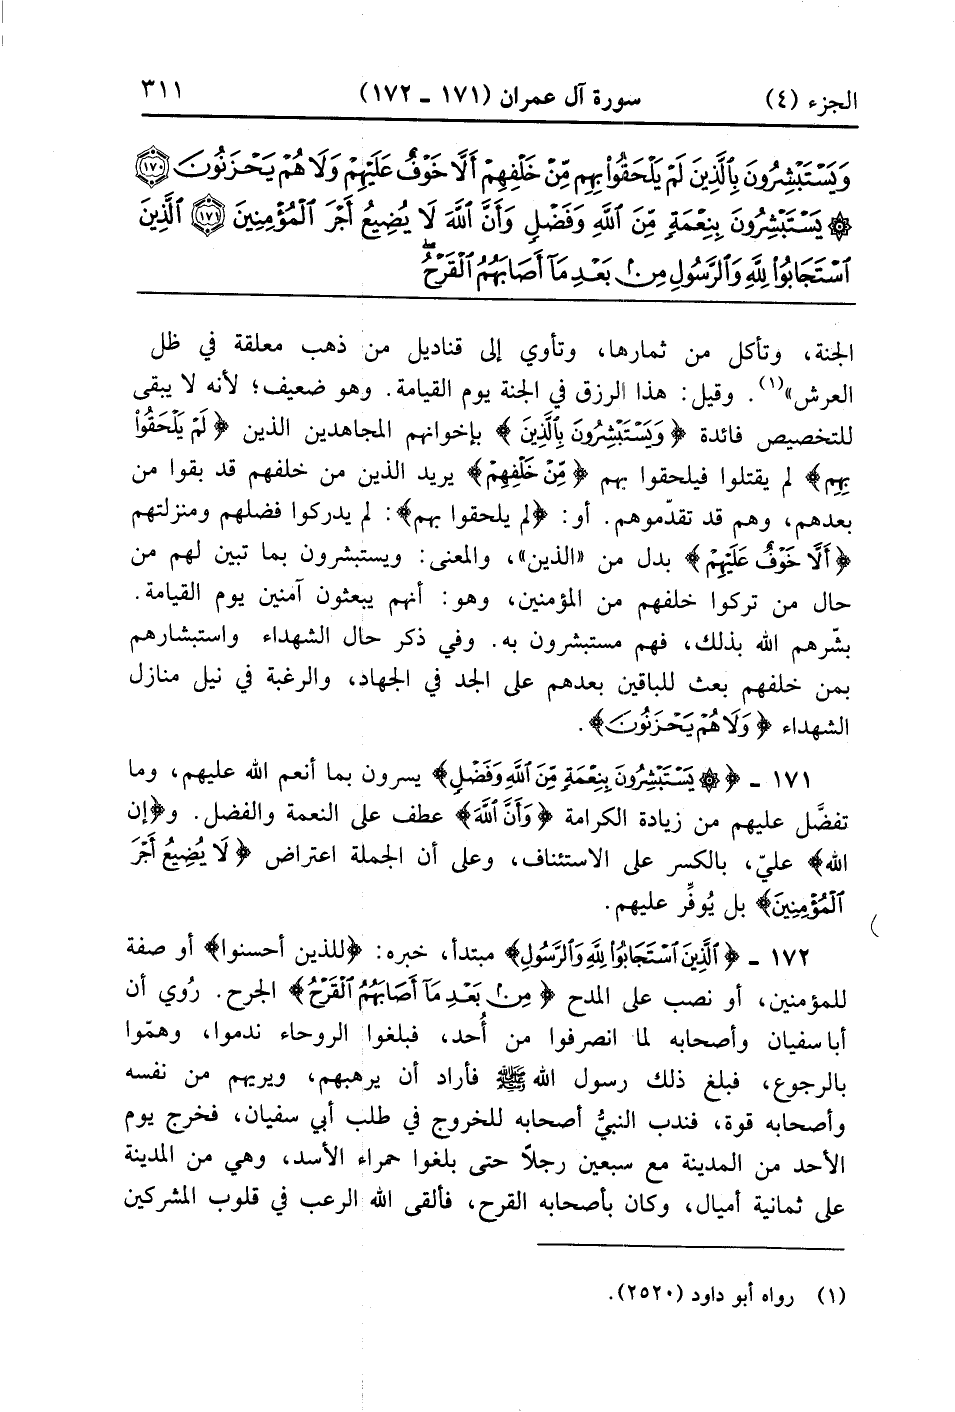 الجزء (٤) سورة آل عمران (١٧١ - ١٧٢) ٣١١
وَيَسْتَبْشِرُونَ بِالَّذِينَ لَمْ يَلْحَقُوا بِهِم مِّنْ خَلْفِهِمْ أَلَّا خَوْفٌ عَلَيْهِمْ وَلَا هُمْ يَحْزَنُونَ ﴿١٧٠﴾
۞ يَسْتَبْشِرُونَ بِنِعْمَةٍ مِّنَ اللَّهِ وَفَضْلٍ وَأَنَّ اللَّهَ لَا يُضِيعُ أَجْرَ الْمُؤْمِنِينَ ﴿١٧١﴾ الَّذِينَ
اسْتَجَابُوا لِلَّهِ وَالرَّسُولِ مِن بَعْدِ مَا أَصَابَهُمُ الْقَرْحُ ۚ
الجنة، وتأكل من ثمارها، وتأوي إلى قناديل من ذهب معلقة في ظل
العرش»(١). وقيل: هذا الرزق في الجنة يوم القيامة. وهو ضعيف؛ لأنه لا يبقى
للتخصيص فائدة ﴿وَيَسْتَبْشِرُونَ بِالَّذِينَ﴾ بإخوانهم المجاهدين الذين ﴿لَمْ يَلْحَقُوا
بِهِم﴾ لم يقتلوا فيلحقوا بهم ﴿مِّنْ خَلْفِهِمْ﴾ يريد الذين من خلفهم قد بقوا من
بعدهم، وهم قد تقدّموهم. أو: ﴿لم يلحقوا بهم﴾: لم يدركوا فضلهم ومنزلتهم
﴿أَلَّا خَوْفٌ عَلَيْهِمْ﴾ بدل من «الذين»، والمعنى: ويستبشرون بما تبين لهم من
حال من تركوا خلفهم من المؤمنين، وهو: أنهم يبعثون آمنين يوم القيامة.
بشّرهم الله بذلك، فهم مستبشرون به. وفي ذكر حال الشهداء واستبشارهم
بمن خلفهم بعث للباقين بعدهم على الجد في الجهاد، والرغبة في نيل منازل
الشهداء ﴿وَلَا هُمْ يَحْزَنُونَ﴾.
١٧١ - ﴿۞ يَسْتَبْشِرُونَ بِنِعْمَةٍ مِّنَ اللَّهِ وَفَضْلٍ﴾ يسرون بما أنعم الله عليهم، وما
تفضَّل عليهم من زيادة الكرامة ﴿وَأَنَّ اللَّهَ﴾ عطف على النعمة والفضل. و﴿إن
الله﴾ عليّ، بالكسر على الاستئناف، وعلى أن الجملة اعتراض ﴿لَا يُضِيعُ أَجْرَ
الْمُؤْمِنِينَ﴾ بل يُوفِّر عليهم.
١٧٢ - ﴿الَّذِينَ اسْتَجَابُوا لِلَّهِ وَالرَّسُولِ﴾ مبتدأ، خبره: ﴿للذين أحسنوا﴾ أو صفة
للمؤمنين، أو نصب على المدح ﴿مِن بَعْدِ مَا أَصَابَهُمُ الْقَرْحُ﴾ الجرح. رُوي أن
أبا سفيان وأصحابه لما انصرفوا من أُحد، فبلغوا الروحاء ندموا، وهمّوا
بالرجوع، فبلغ ذلك رسول الله ﷺ فأراد أن يرهبهم، ويريهم من نفسه
وأصحابه قوة، فندب النبيُّ أصحابه للخروج في طلب أبي سفيان، فخرج يوم
الأحد من المدينة مع سبعين رجلاً حتى بلغوا حمراء الأسد، وهي من المدينة
على ثمانية أميال، وكان بأصحابه القرح، فألقى الله الرعب في قلوب المشركين
(١) رواه أبو داود (٢٥٢٠).